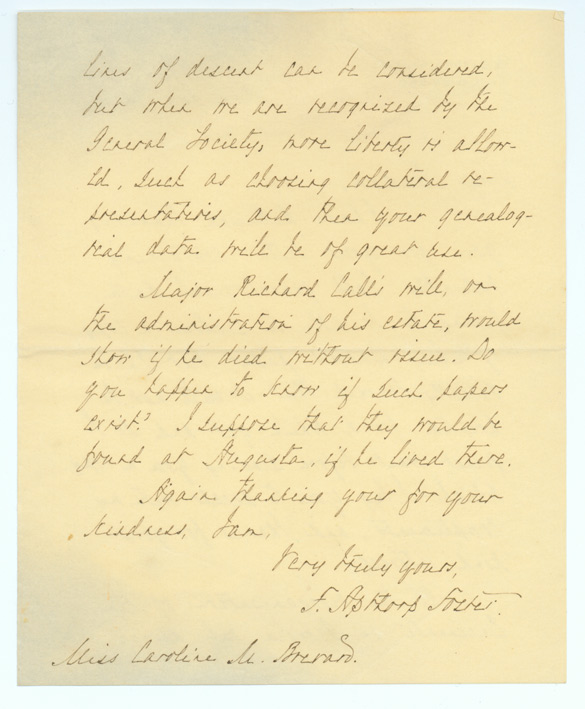 lines of descent can be considered,
but when we are recognized by the
General Society, more liberty is allow-
ed, such as choosing collateral re-
presentatives, and then your genealog-
ical data will be of great use.
Major Richard Call's will, or
the administration of his estate, would
show if he died without issue. Do
you happen to know if such papers
exist? I suppose that they would be
found at Augusta, if he lived there.
Again thanking your for your
kindness, I am,
Very truly yours,
F. Apthorp Foster.
Miss Caroline M. Brevard.